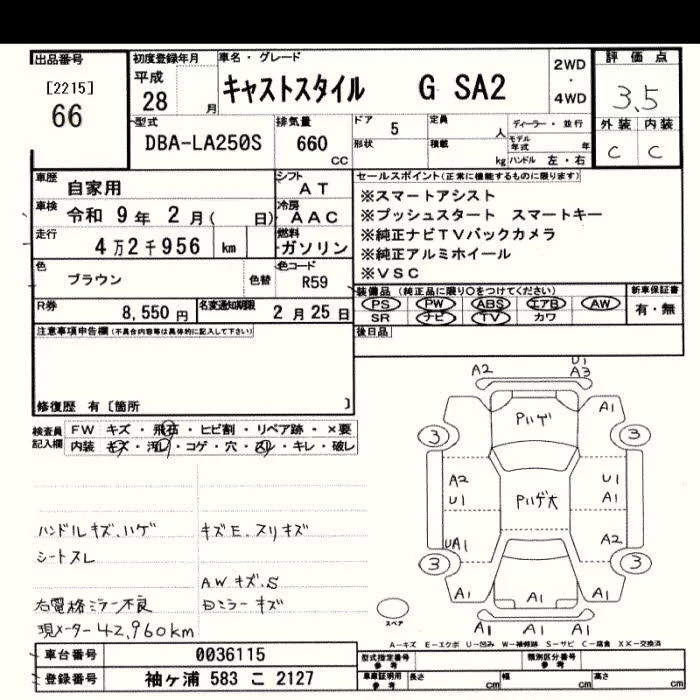 出品番号
[2215]
66
初度登録年月
平成
28 月
車名・グレード
キャストスタイル G SA2
2WD
・
4WD
評価点
3.5
外装 内装
C C
型式
DBA-LA250S
排気量
660
CC
ドア
5
定員
人
形状
積載
kg
ディーラー・並行
モデル年式 年
ハンドル 左・右
車歴
自家用
シフト
AT
車検
令和 9年 2月( 日)
冷房
AAC
走行
4万2千956 km
燃料
ガソリン
色
ブラウン
色替
色コード
R59
R券
8,550円
名変通知期限
2月25日
セールスポイント(正常に機能するものに限ります)
※スマートアシスト
※プッシュスタート スマートキー
※純正ナビTVバックカメラ
※純正アルミホイール
※VSC
装備品(純正品に限り○をつけてください)
PS PW ABS エアB AW
SR ナビ TV カワ
新車保証書
有・無
注意事項申告欄(不具合内容等は具体的に記入して下さい)
後日品
修復歴 有〔箇所 〕
検査員記入欄
FW キズ・飛石・ヒビ割・リペア跡・×要
内装 キズ・汚レ・コゲ・穴・スレ・キレ・破レ
ハンドルキズ、ハゲ
キズE、スリキズ
シートスレ
AWキズ、S
右電格ミラー不良
Dミラーキズ
現メーター42,960km
A2
U1
A3
A1
Pハゲ
3
3
A2
U1
Pハゲ大
U1
A1
UA1
A2
3
3
A1
A1
A1
A1
A1
A1
スペア
A-キズ E-エクボ U-凹み W-補修跡 S-サビ C-腐食 XX-交換済
車台番号
0036115
登録番号
袖ヶ浦 583 こ 2127
型式指定番号
参考
類別区分番号
参考
車庫証明用
参考
長さ cm
幅 cm
高さ cm